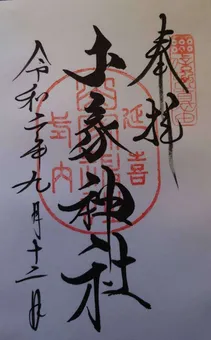 奉拝
延喜
山家神社
式内
令和二年九月十二日